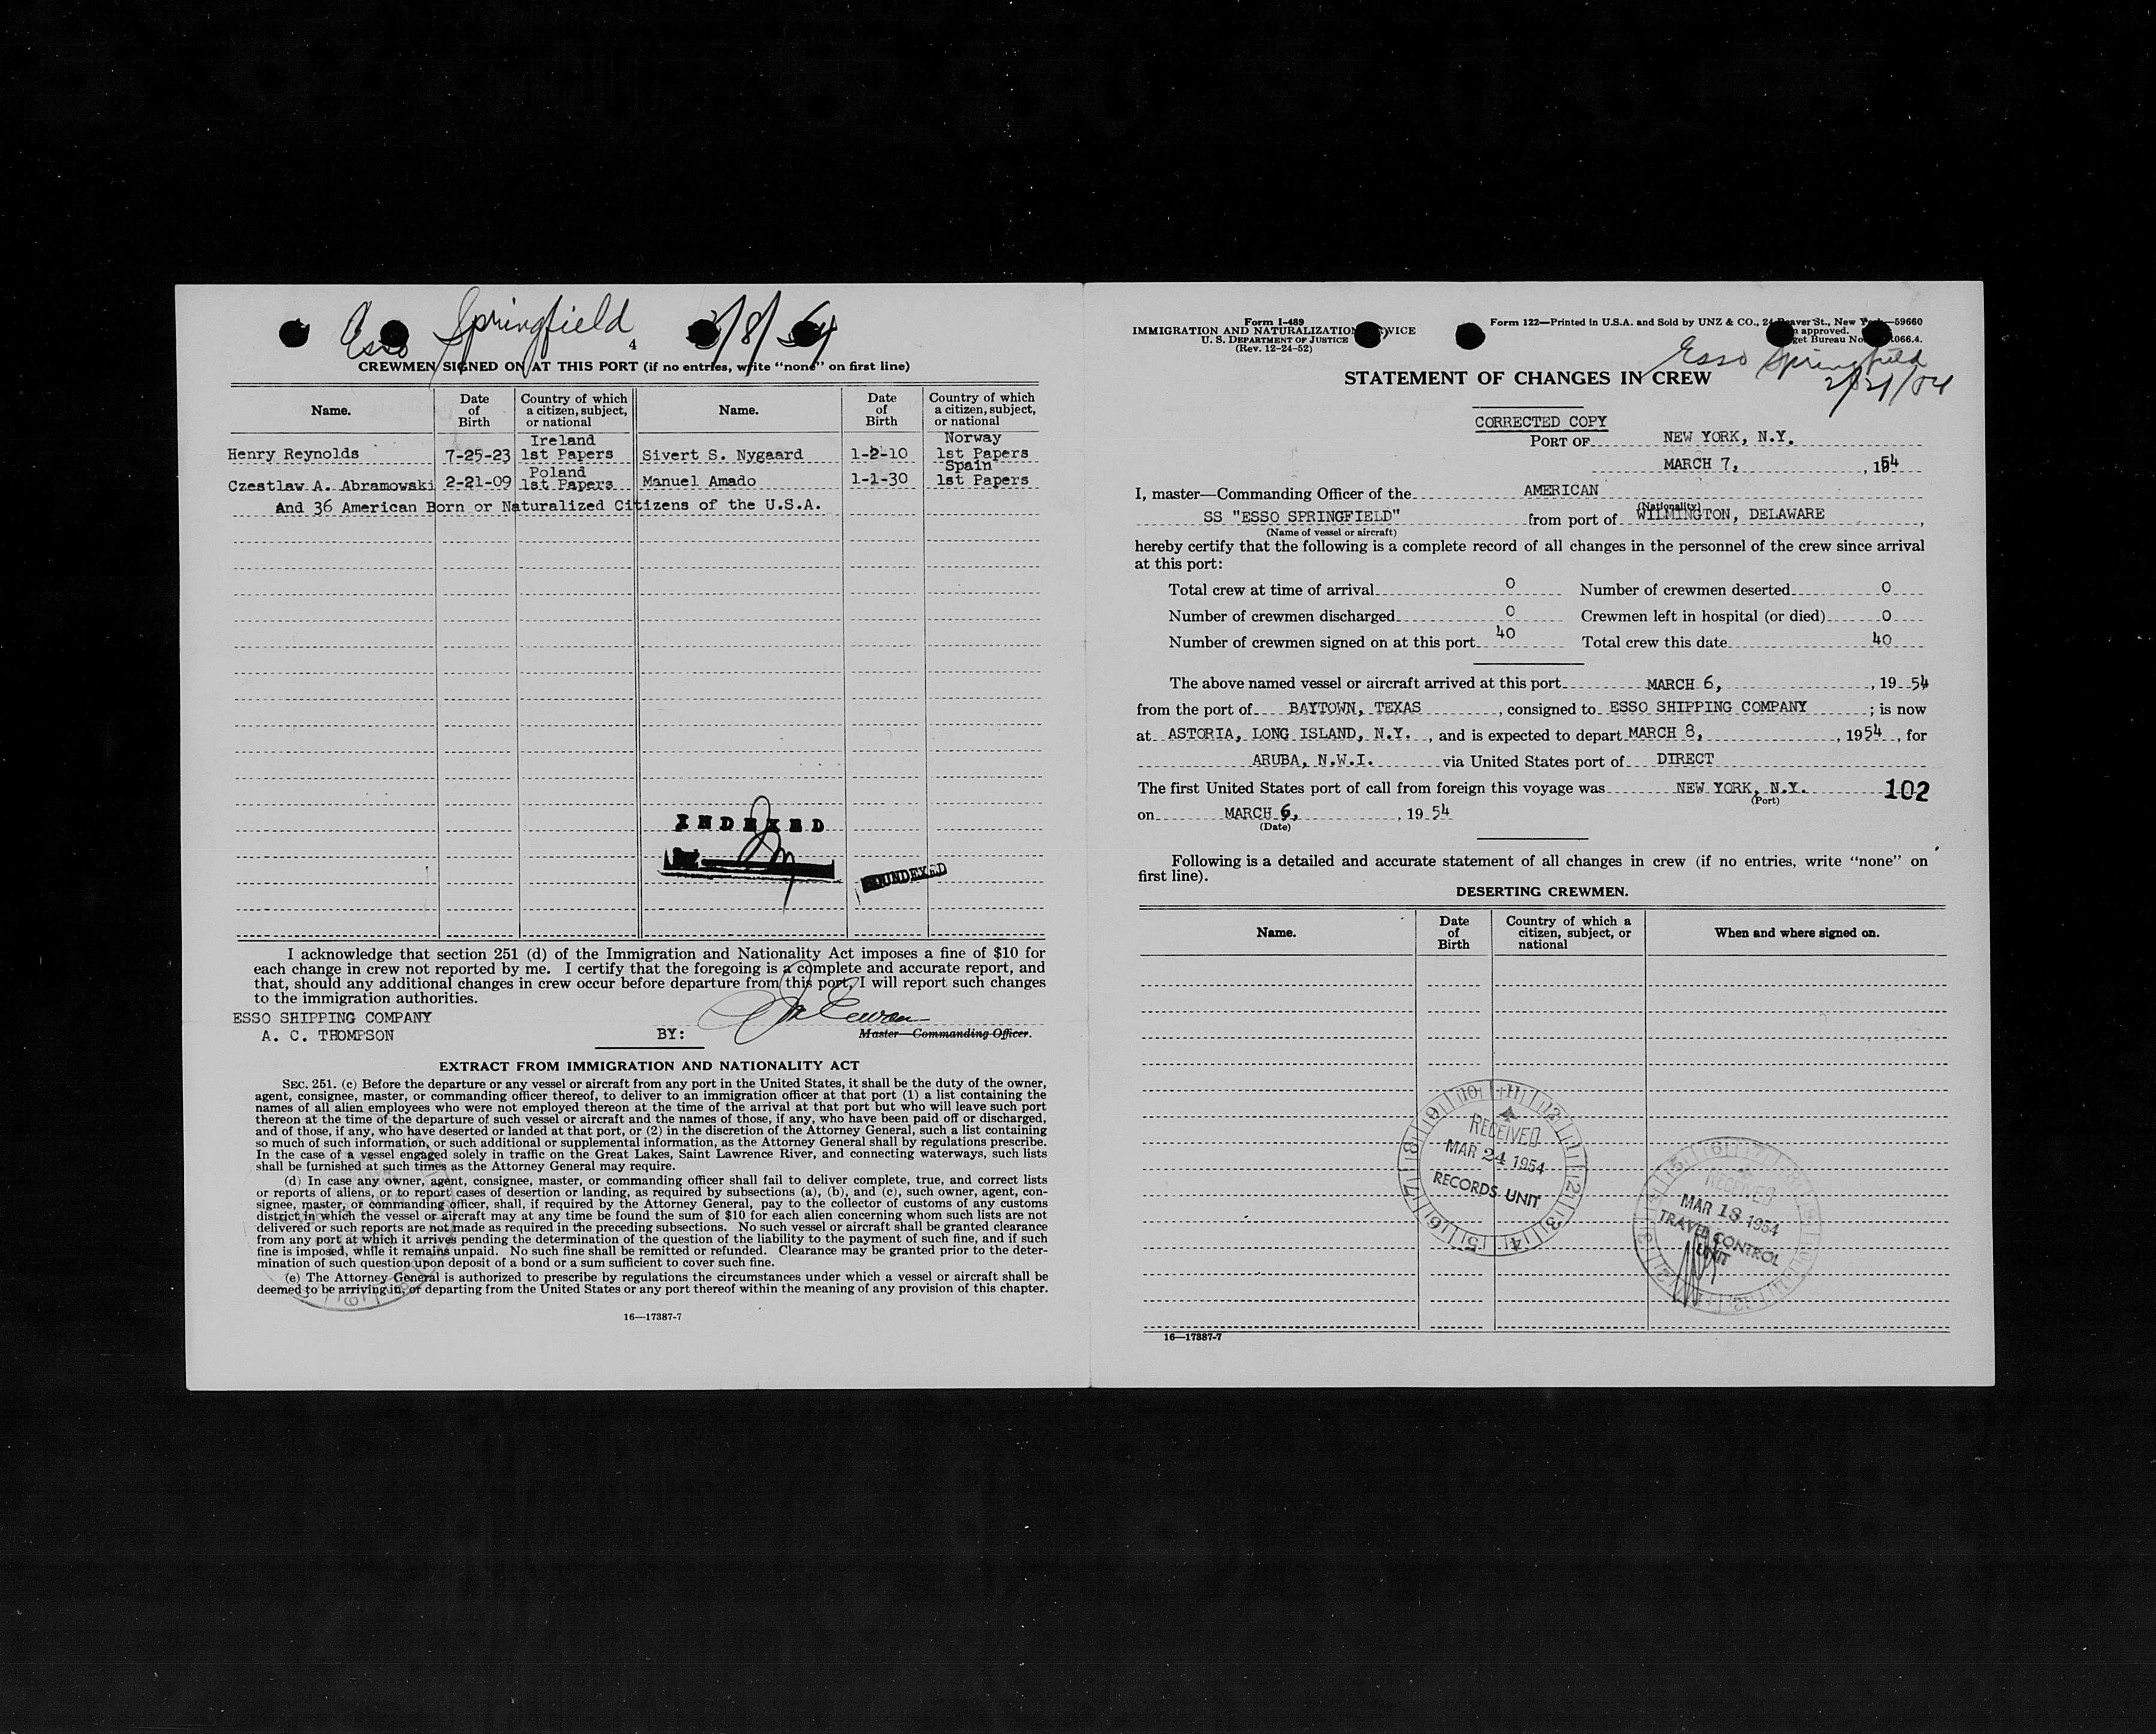 Esso Springfield 3/8/54
4
CREWMEN SIGNED ON AT THIS PORT (if no entries, write “none” on first line)
Name. Date of Birth Country of which a citizen, subject, or national Name. Date of Birth Country of which a citizen, subject, or national
Henry Reynolds 7-25-23 Ireland 1st Papers Sivert S. Nygaard 1-2-10 Norway 1st Papers
Czestlaw A. Abramowski 2-21-09 Poland 1st Papers Manuel Amado 1-1-30 Spain 1st Papers
And 36 American Born or Naturalized Citizens of the U.S.A.
INDEXED
I acknowledge that section 251 (d) of the Immigration and Nationality Act imposes a fine of $10 for
each change in crew not reported by me. I certify that the foregoing is a complete and accurate report, and
that, should any additional changes in crew occur before departure from this port, I will report such changes
to the immigration authorities.
ESSO SHIPPING COMPANY
A. C. THOMPSON BY: Master—Commanding Officer.
EXTRACT FROM IMMIGRATION AND NATIONALITY ACT
SEC. 251. (c) Before the departure or any vessel or aircraft from any port in the United States, it shall be the duty of the owner,
agent, consignee, master, or commanding officer thereof, to deliver to an immigration officer at that port (1) a list containing the
names of all alien employees who were not employed thereon at the time of the arrival at that port but who will leave such port
thereon at the time of the departure of such vessel or aircraft and the names of those, if any, who have been paid off or discharged,
and of those, if any, who have deserted or landed at that port, or (2) in the discretion of the Attorney General, such a list containing
so much of such information, or such additional or supplemental information, as the Attorney General shall by regulations prescribe.
In the case of a vessel engaged solely in traffic on the Great Lakes, Saint Lawrence River, and connecting waterways, such lists
shall be furnished at such times as the Attorney General may require.
(d) In case any owner, agent, consignee, master, or commanding officer shall fail to deliver complete, true, and correct lists
or reports of aliens, or to report cases of desertion or landing, as required by subsections (a), (b), and (c), such owner, agent, con-
signee, master, or commanding officer, shall, if required by the Attorney General, pay to the collector of customs of any customs
district in which the vessel or aircraft may at any time be found the sum of $10 for each alien concerning whom such lists are not
delivered or such reports are not made as required in the preceding subsections. No such vessel or aircraft shall be granted clearance
from any port at which it arrives pending the determination of the question of the liability to the payment of such fine, and if such
fine is imposed, while it remains unpaid. No such fine shall be remitted or refunded. Clearance may be granted prior to the deter-
mination of such question upon deposit of a bond or a sum sufficient to cover such fine.
(e) The Attorney General is authorized to prescribe by regulations the circumstances under which a vessel or aircraft shall be
deemed to be arriving in, or departing from the United States or any port thereof within the meaning of any provision of this chapter.
16—17387-7
Form I-489
IMMIGRATION AND NATURALIZATION
U. S. DEPARTMENT OF JUSTICE
(Rev. 12-24-52)
Form 122—Printed in U.S.A. and Sold by UNZ & CO., St., New 59660
approved.
Bureau No. 066.4.
Esso Springfield
STATEMENT OF CHANGES IN CREW
CORRECTED COPY
PORT OF NEW YORK, N.Y.
MARCH 7, , 1954
I, master—Commanding Officer of the AMERICAN
(Nationality)
SS "ESSO SPRINGFIELD" from port of WILMINGTON, DELAWARE ,
(Name of vessel or aircraft)
hereby certify that the following is a complete record of all changes in the personnel of the crew since arrival
at this port:
Total crew at time of arrival 0 Number of crewmen deserted 0
Number of crewmen discharged 0 Crewmen left in hospital (or died) 0
Number of crewmen signed on at this port 40 Total crew this date 40
The above named vessel or aircraft arrived at this port MARCH 6, , 19 54
from the port of BAYTOWN, TEXAS , consigned to ESSO SHIPPING COMPANY ; is now
at ASTORIA, LONG ISLAND, N.Y. , and is expected to depart MARCH 8, , 1954 , for
ARUBA, N.W.I. via United States port of DIRECT
The first United States port of call from foreign this voyage was NEW YORK, N.Y. 102
(Port)
on MARCH 6, , 19 54
(Date)
Following is a detailed and accurate statement of all changes in crew (if no entries, write “none” on
first line).
DESERTING CREWMEN.
Name. Date of Birth Country of which a citizen, subject, or national When and where signed on.
RECEIVED
MAR 24 1954
RECORDS UNIT
RECEIVED
MAR 18 1954
TRAVEL CONTROL
UNIT
16—17387-7